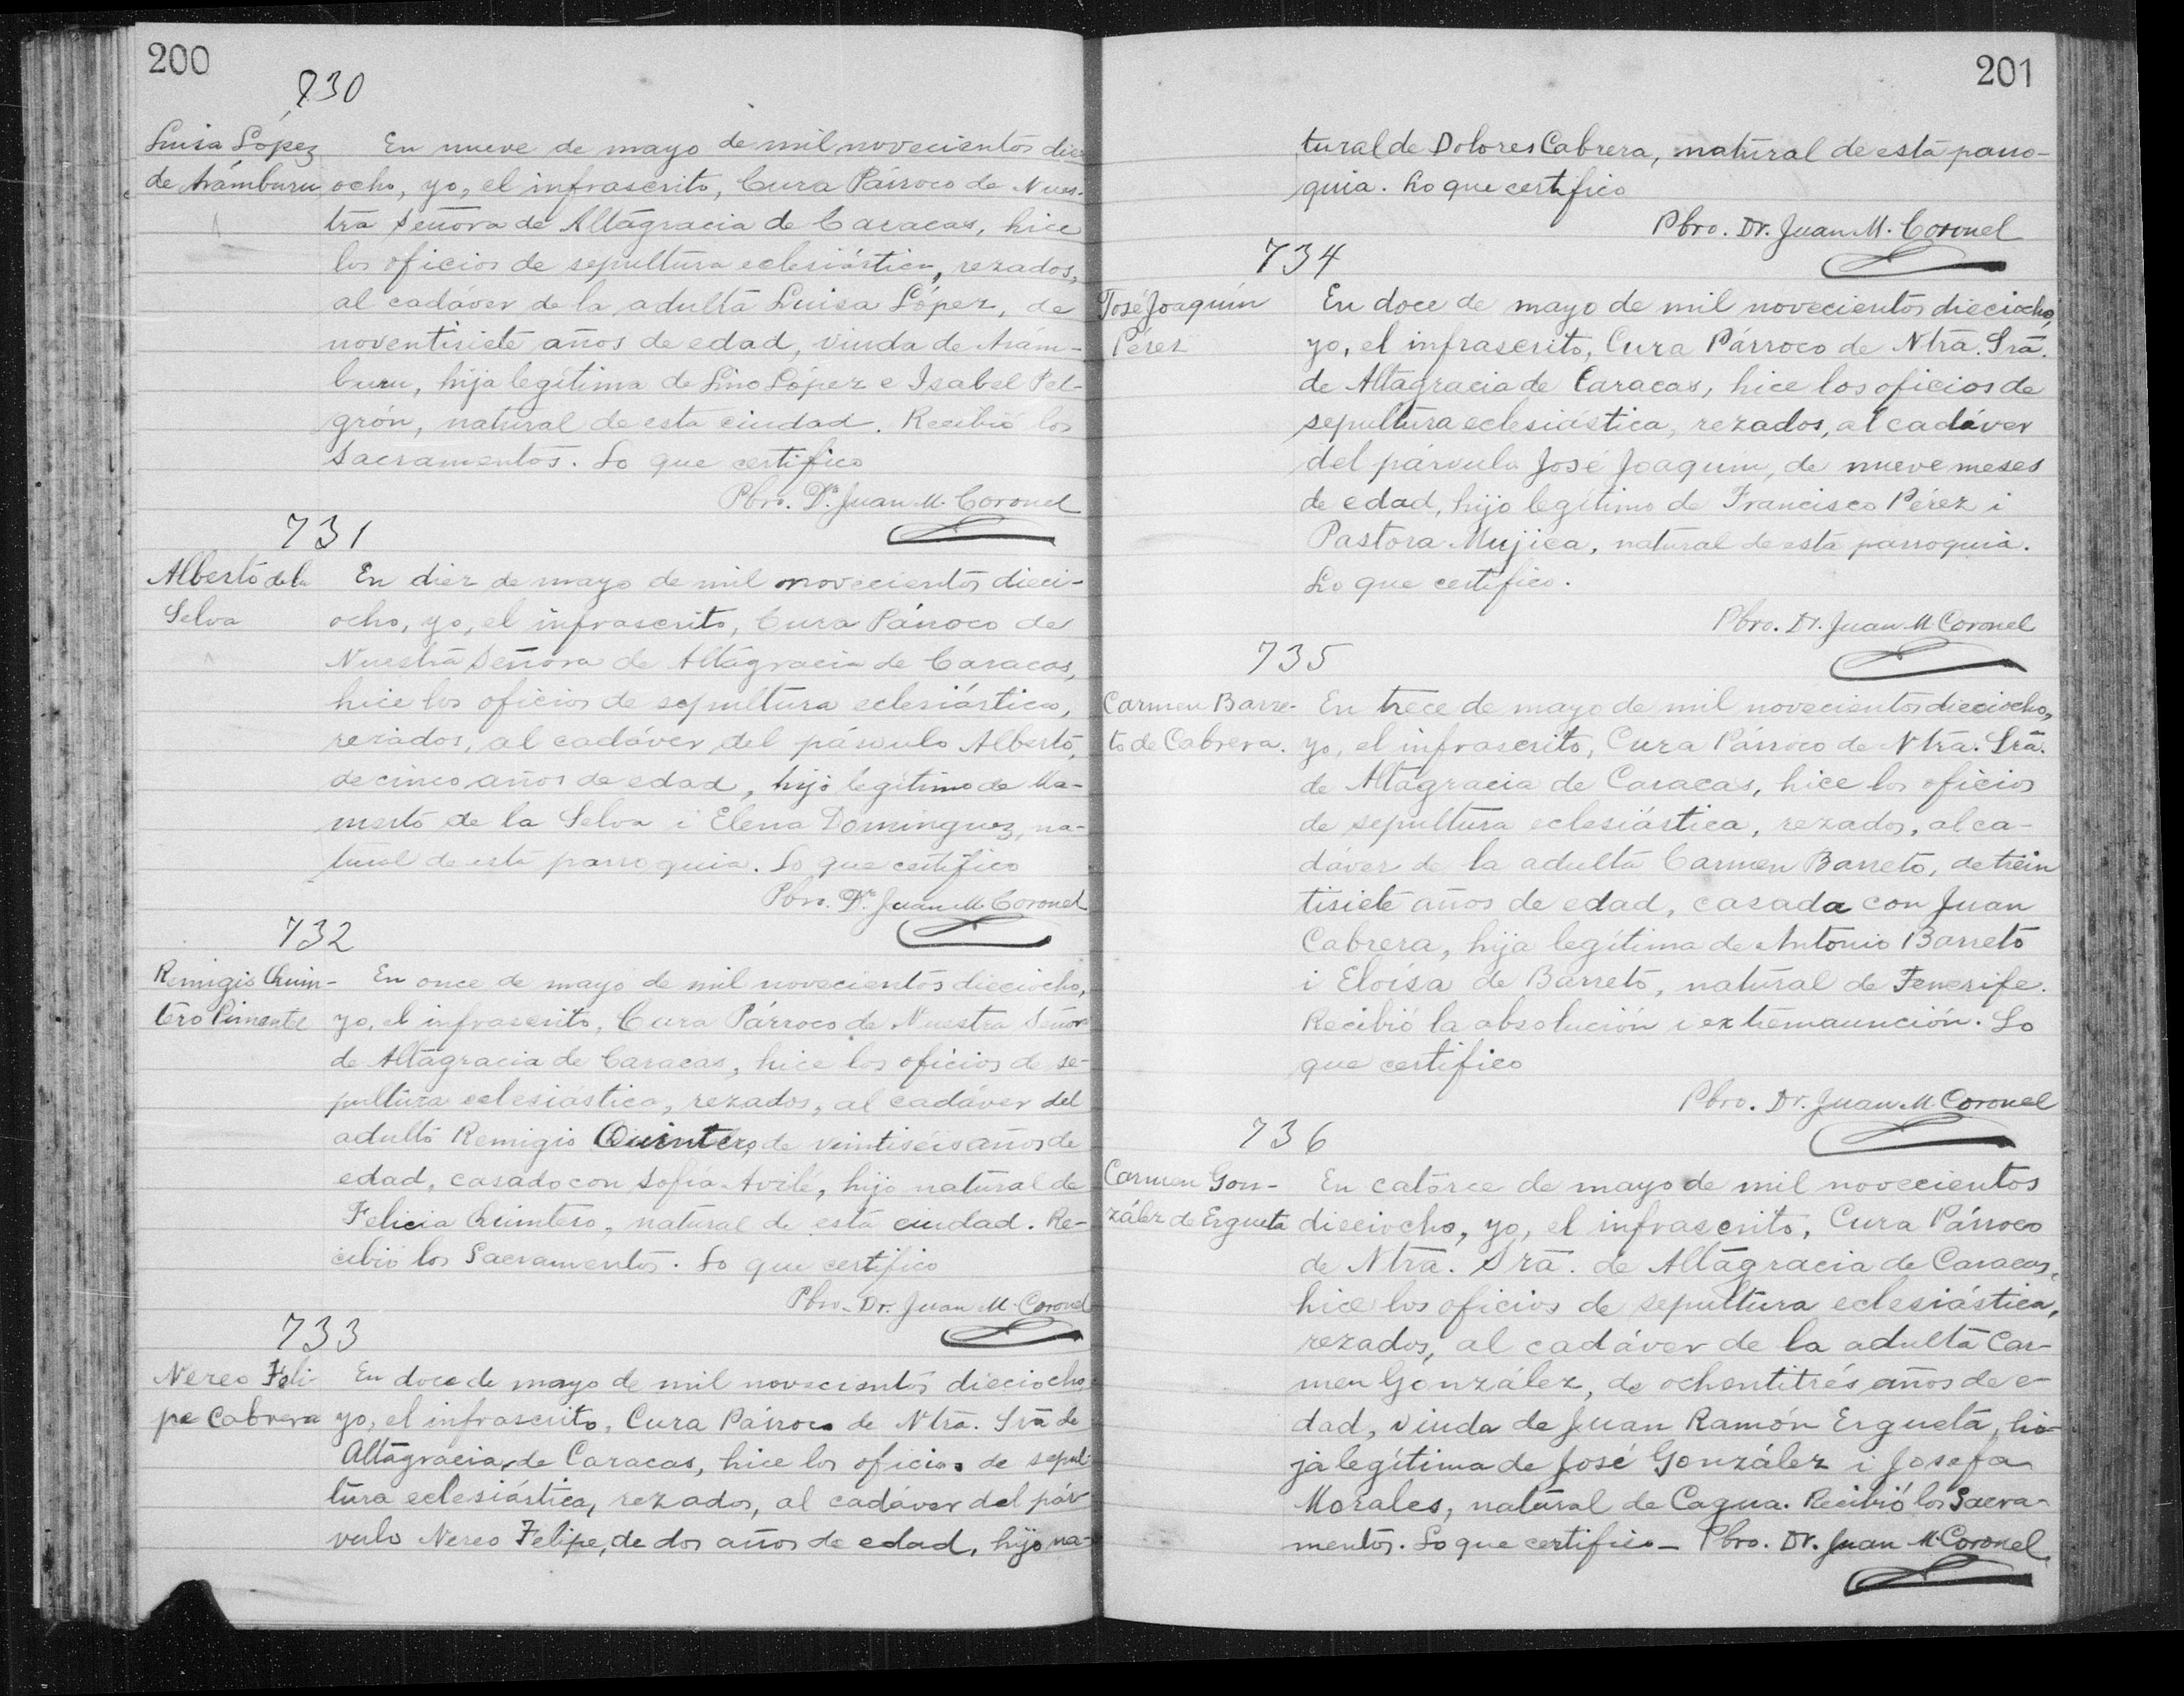 200
730
Luisa López
de Arámburu
En nueve de mayo de mil novecientos diez
ocho, yo, el infrascrito, Cura Párroco de Nues-
tra Señora de Altagracia de Caracas, hice
los oficios de sepultura eclesiástica, rezados,
al cadáver de la adulta Luisa López, de
noventisiete años de edad, viuda de Arám-
buru, hija legítima de Lino López e Isabel Pel-
grón, natural de esta ciudad. Recibió los
Sacramentos. Lo que certifico
Pbro. Dr. Juan M. Coronel
731
Alberto de la
Selva
En diez de mayo de mil novecientos dieci-
ocho, yo, el infrascrito, Cura Párroco de
Nuestra Señora de Altagracia de Caracas,
hice los oficios de sepultura eclesiástica,
rezados, al cadáver del párvulo Alberto,
de cinco años de edad, hijo legítimo de Ma-
merto de la Selva i Elena Domínguez, na-
tural de esta parroquia. Lo que certifico
Pbro. Dr. Juan M. Coronel
732
Remigio Quin-
tero Pimentel
En once de mayo de mil novecientos dieciocho,
yo, el infrascrito, Cura Párroco de Nuestra Señora
de Altagracia de Caracas, hice los oficios de se-
pultura eclesiástica, rezados, al cadáver del
adulto Remigio Quintero, de veintiséis años de
edad, casado con Sofía Avilé, hijo natural de
Felicia Quintero, natural de esta ciudad. Re-
cibió los Sacramentos. Lo que certifico
Pbro. Dr. Juan M. Coronel
733
Nereo Feli-
pe Cabrera
En doce de mayo de mil novecientos dieciocho,
yo, el infrascrito, Cura Párroco de Ntra. Sra de
Altagracia de Caracas, hice los oficios de sepul-
tura eclesiástica, rezados, al cadáver del pár
vulo Nereo Felipe, de dos años de edad, hijo na-
201
tural de Dolores Cabrera, natural de esta parro-
quia. Lo que certifico
Pbro. Dr. Juan M. Coronel
734
José Joaquín
Pérez
En doce de mayo de mil novecientos dieciocho,
yo, el infrascrito, Cura Párroco de Ntra. Sra.
de Altagracia de Caracas, hice los oficios de
sepultura eclesiástica, rezados, al cadáver
del párvulo José Joaquín, de nueve meses
de edad, hijo legítimo de Francisco Pérez i
Pastora Mujica, natural de esta parroquia.
Lo que certifico.
Pbro. Dr. Juan M Coronel
735
Carmen Barre-
to de Cabrera.
En trece de mayo de mil novecientos dieciocho,
yo, el infrascrito, Cura Párroco de Ntra. Sra.
de Altagracia de Caracas, hice los oficios
de sepultura eclesiástica, rezados, al ca-
dáver de la adulta Carmen Barreto, de trein
tisiete años de edad, casada con Juan
Cabrera, hija legítima de Antonio Barreto
i Eloísa de Barreto, natural de Tenerife.
Recibió la absolución i extremaunción. Lo
que certifico
Pbro. Dr. Juan M Coronel
736
Carmen Gon-
zález de Ergueta
En catorce de mayo de mil novecientos
dieciocho, yo, el infrascrito, Cura Párroco
de Ntra. Sra. de Altagracia de Caracas,
hice los oficios de sepultura eclesiástica,
rezados, al cadáver de la adulta Car-
men González, de ochentitrés años de e-
dad, viuda de Juan Ramón Ergueta, hi-
ja legítima de José González i Josefa
Morales, natural de Cagua. Recibió los Sacra-
mentos. Lo que certifico - Pbro. Dr. Juan M. Coronel